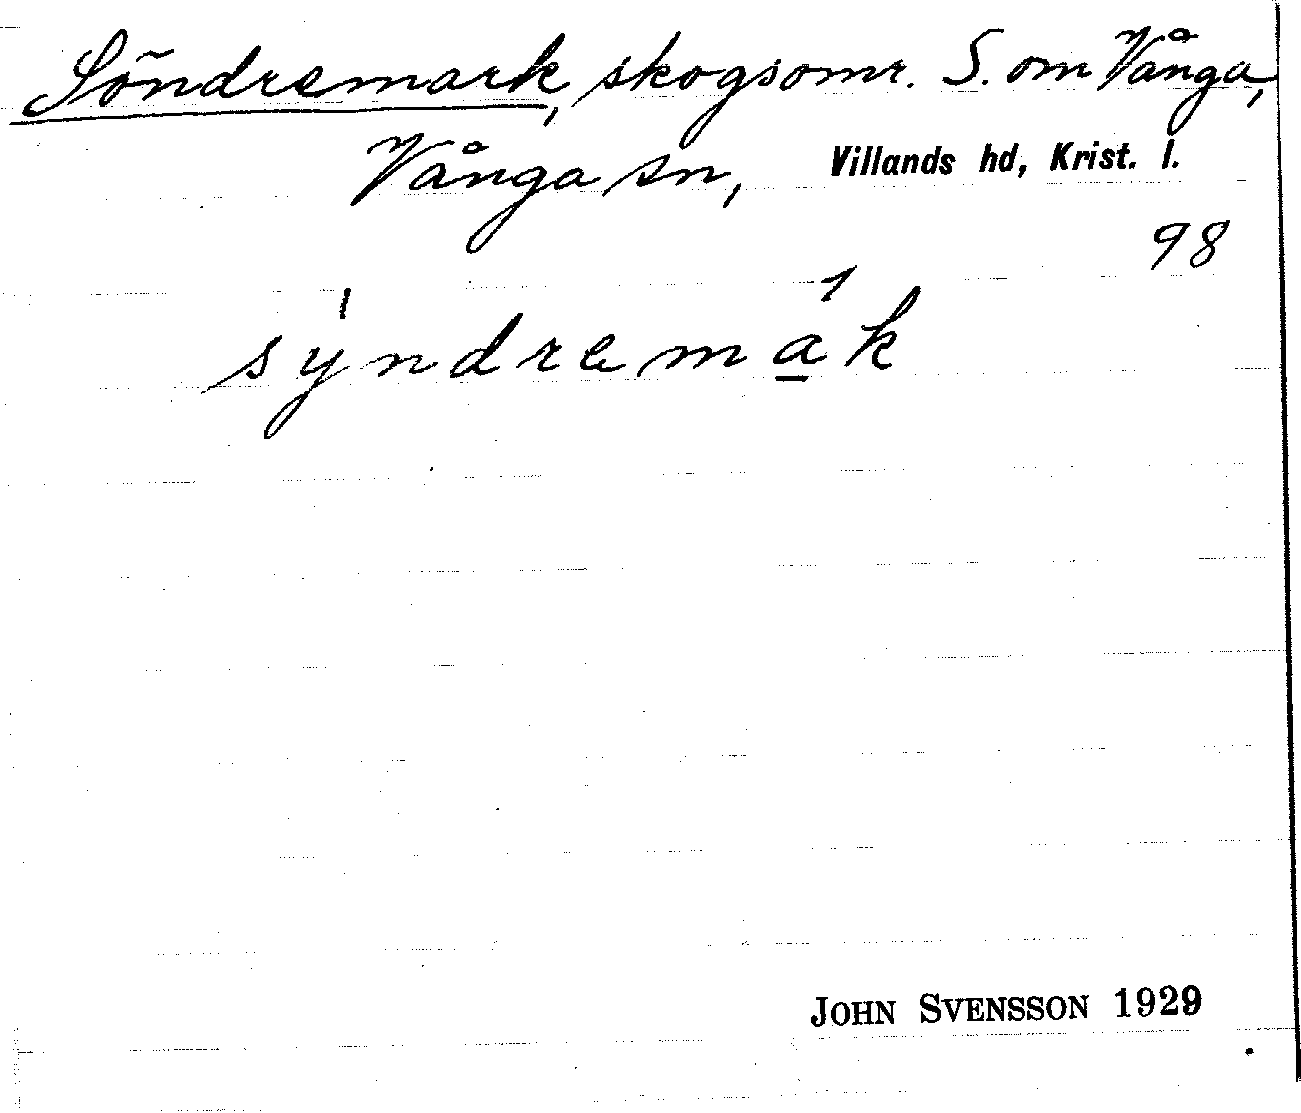 Söndremark, skogsomr. S. om Vånga,
Vånga sn, Villands hd, Krist. l.
98
sýndremák
JOHN SVENSSON 1929